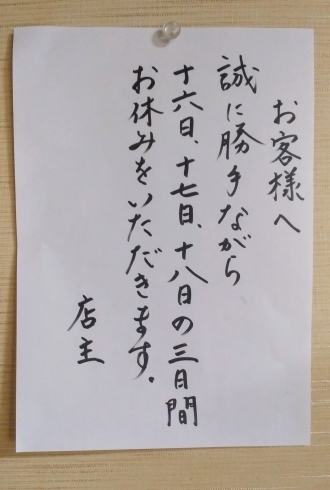 お客様へ
誠に勝手ながら
十六日、十七日、十八日の三日間
お休みをいただきます。
店主